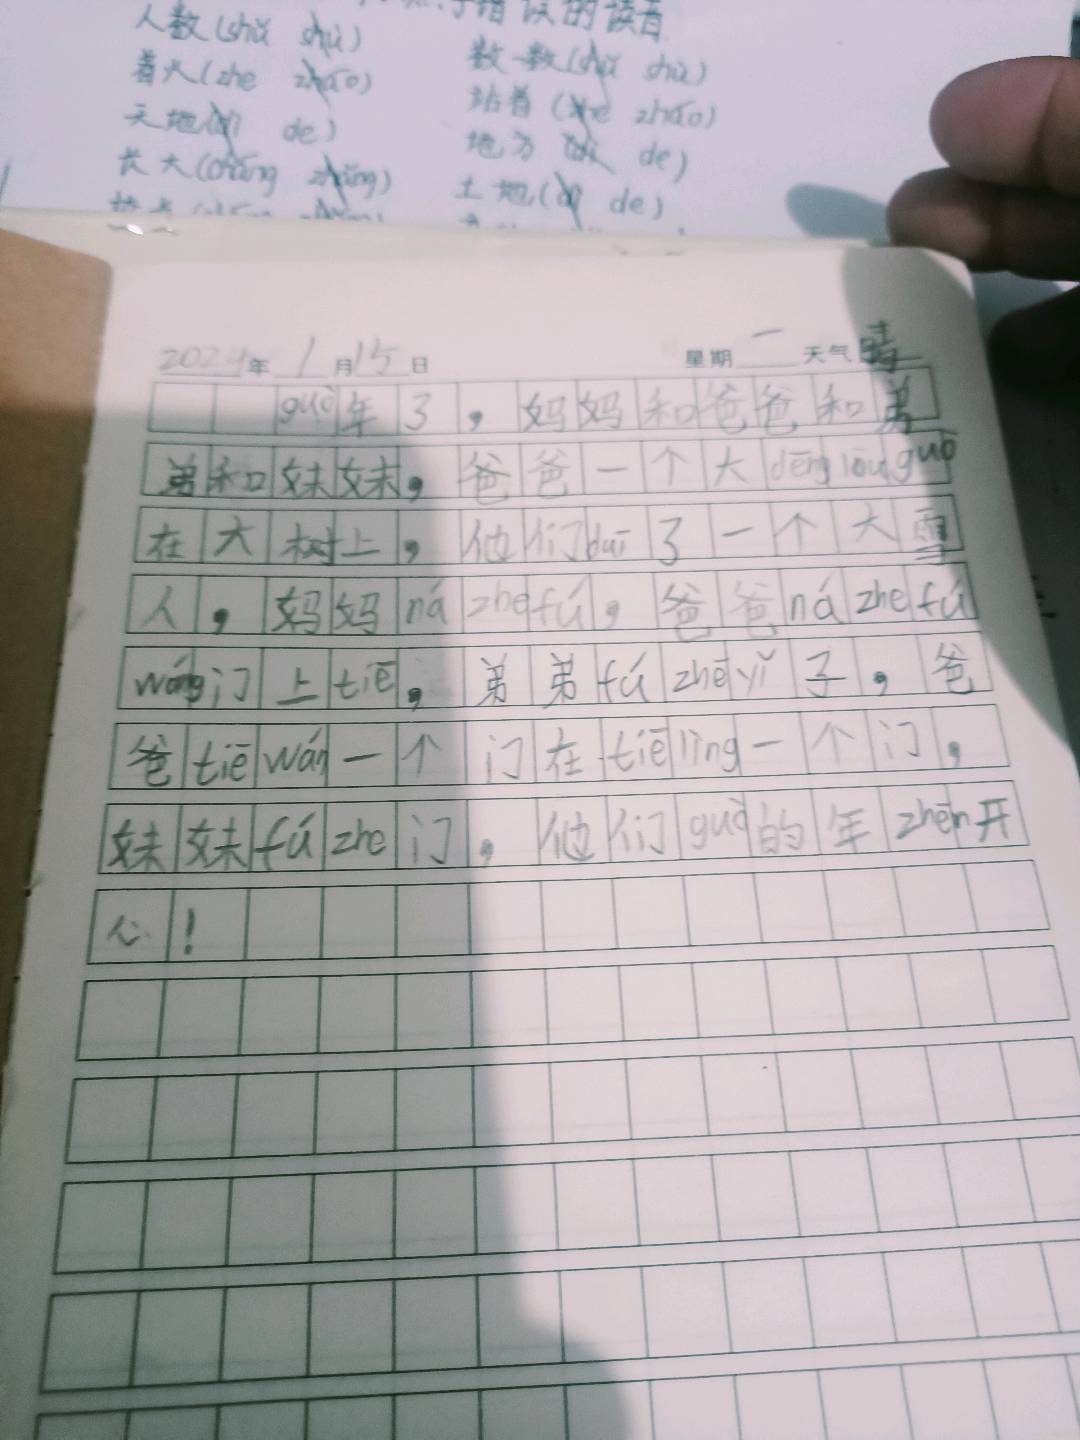 错误的读音
人数(shǔ shù) 数一数(shǔ shù)
着火(zhe zháo) 站着(zhe zháo)
天地(dì de) 地方(dì de)
长大(cháng zhǎng) 土地(dì de)
2024年1月15日 星期一 天气晴
guò年了，妈妈和爸爸和弟
弟和妹妹，爸爸一个大dēng lóu guō
在大树上，他们duī了一个大雪
人，妈妈ná zhe fú，爸爸ná zhe fú
wáng门上tiē，弟弟fú zhē yǐ子，爸
爸tiē wán一个门在tiē lìng一个门，
妹妹fú zhe门，他们guò的年zhēn开
心！